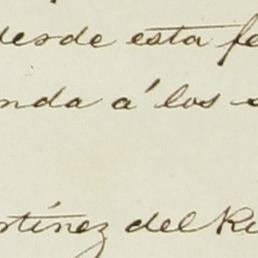 desde esta fe
nda á los s
rtínez del Ri